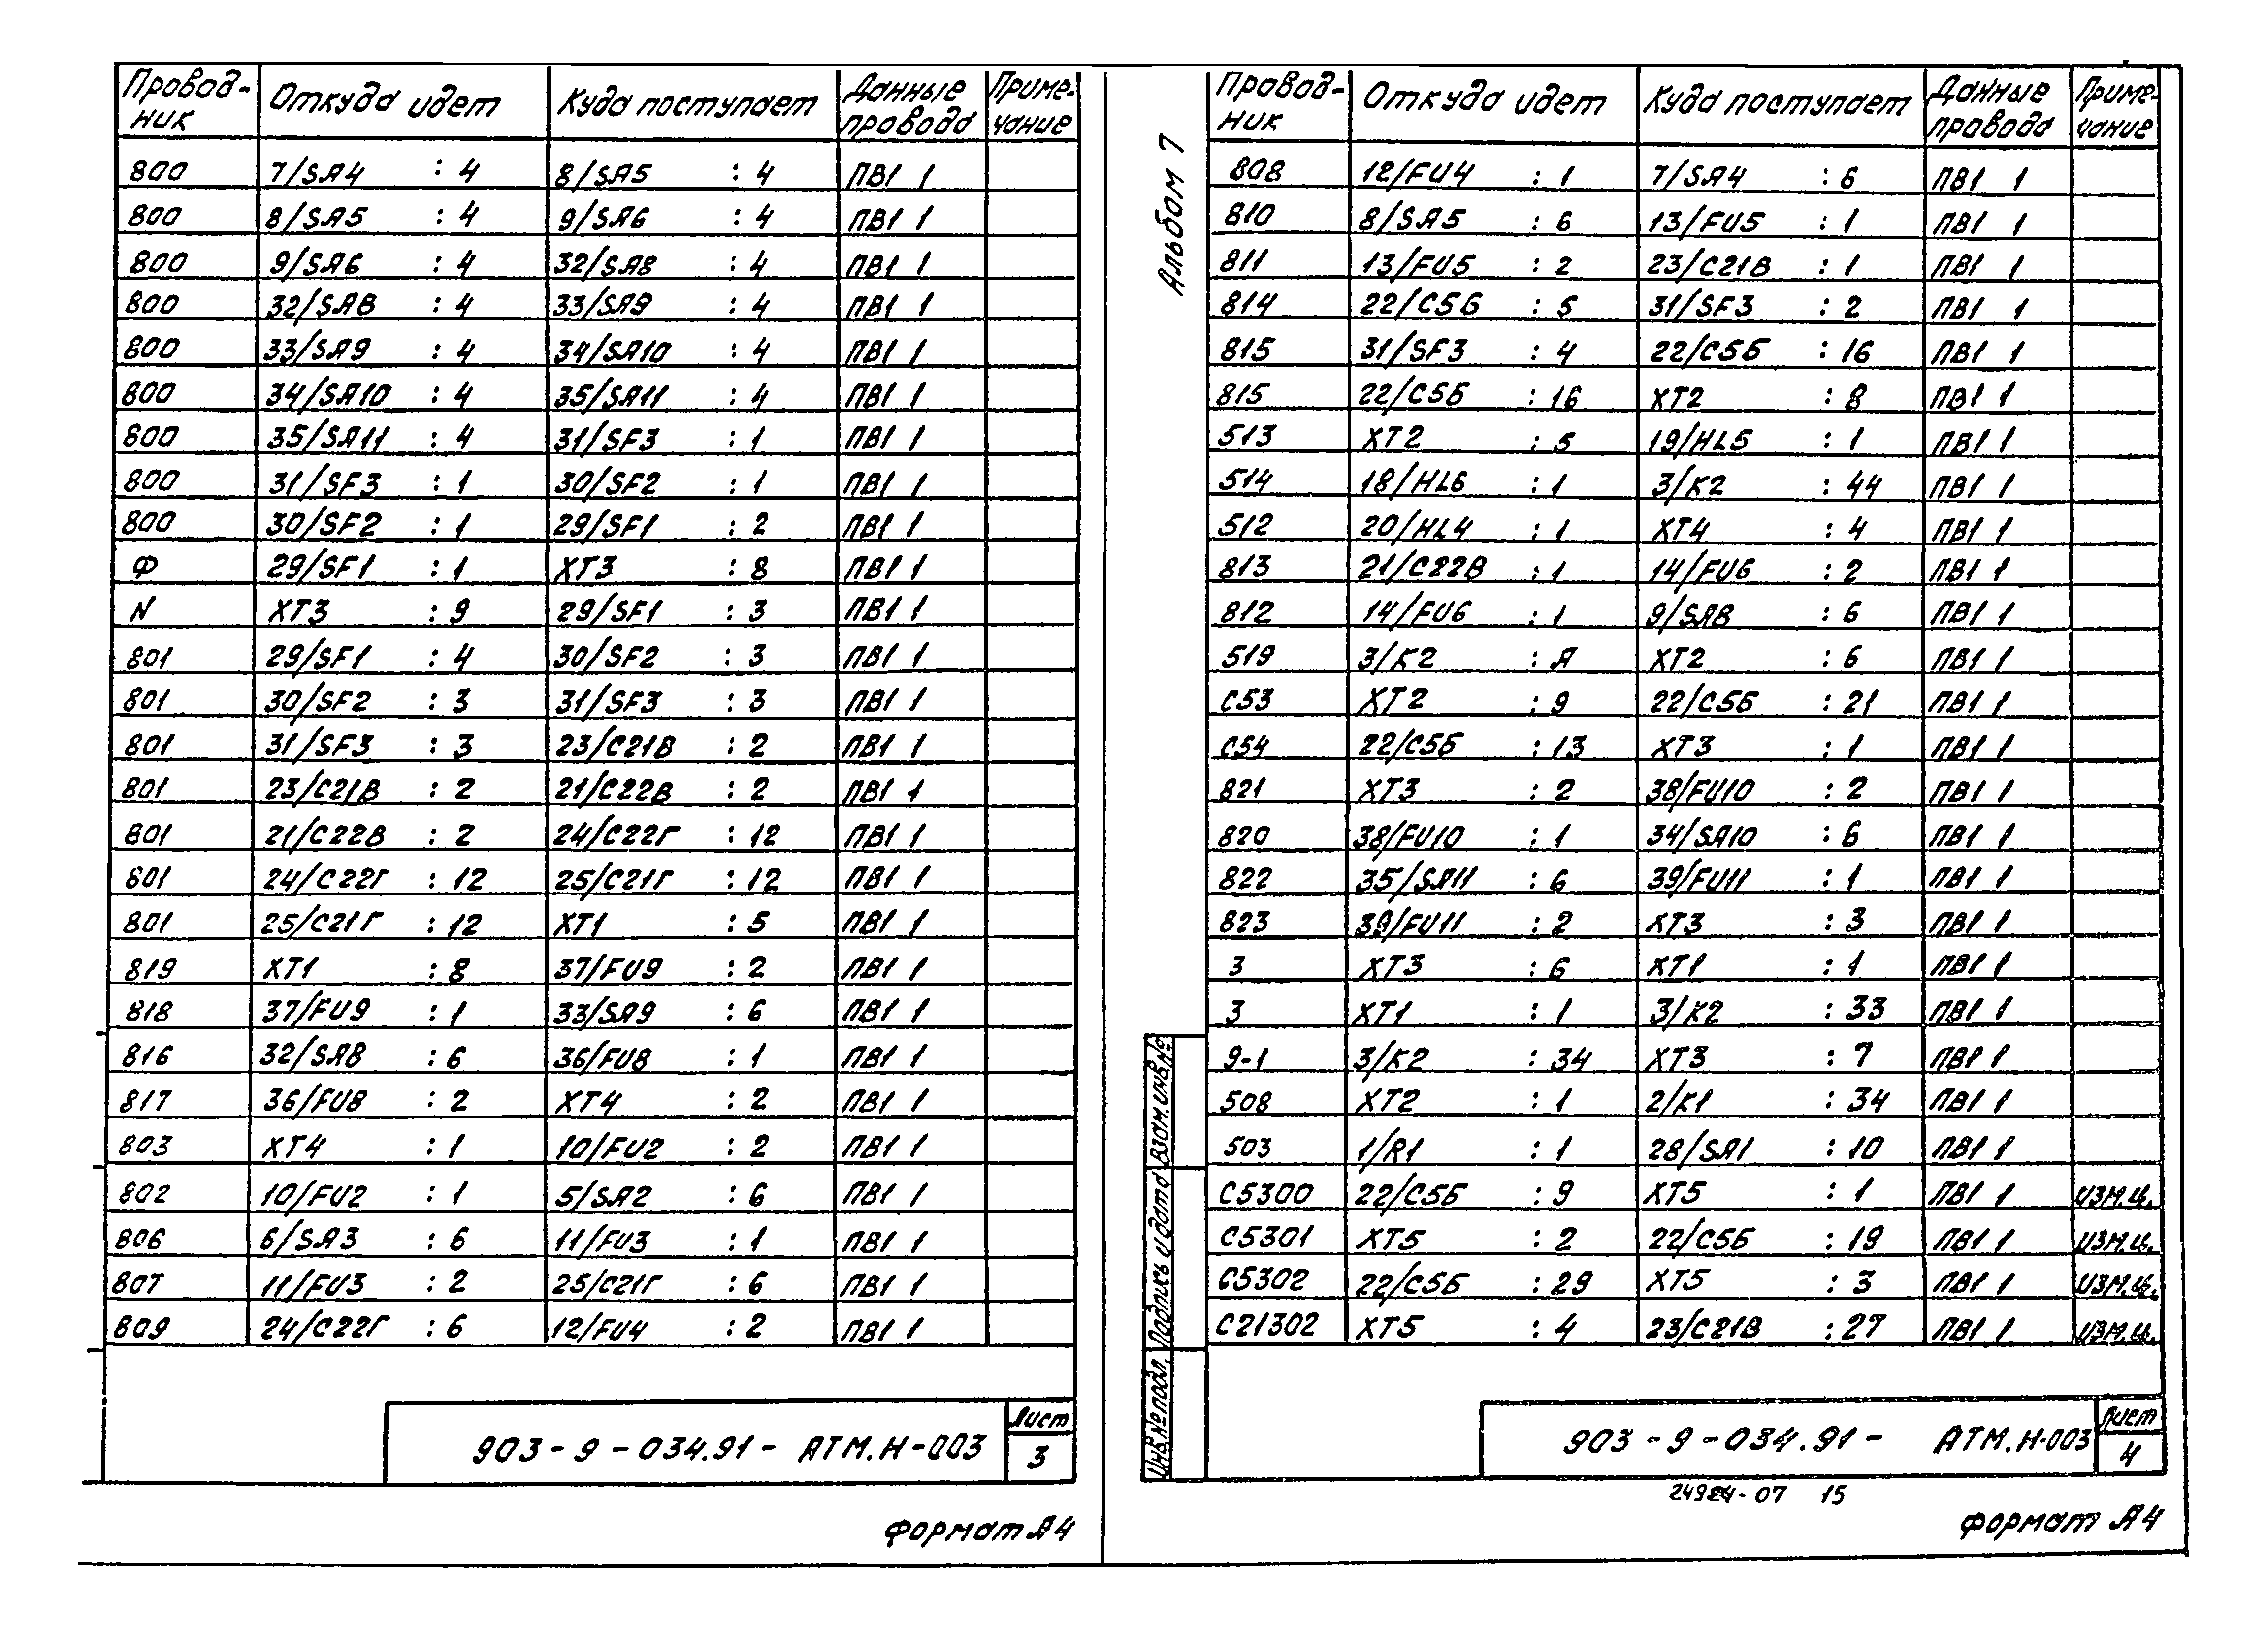 Провод-ник Откуда идет Куда поступает Данные провода Примечание
800 7/SA4 :4 8/SA5 :4 ПВ1 1
800 8/SA5 :4 9/SA6 :4 ПВ1 1
800 9/SA6 :4 32/SA8 :4 ПВ1 1
800 32/SA8 :4 33/SA9 :4 ПВ1 1
800 33/SA9 :4 34/SA10 :4 ПВ1 1
800 34/SA10 :4 35/SA11 :4 ПВ1 1
800 35/SA11 :4 31/SF3 :1 ПВ1 1
800 31/SF3 :1 30/SF2 :1 ПВ1 1
800 30/SF2 :1 29/SF1 :2 ПВ1 1
Ф 29/SF1 :1 XT3 :8 ПВ1 1
N XT3 :9 29/SF1 :3 ПВ1 1
801 29/SF1 :4 30/SF2 :3 ПВ1 1
801 30/SF2 :3 31/SF3 :3 ПВ1 1
801 31/SF3 :3 23/С21В :2 ПВ1 1
801 23/С21В :2 21/С22В :2 ПВ1 1
801 21/С22В :2 24/С22Г :12 ПВ1 1
801 24/С22Г :12 25/С21Г :12 ПВ1 1
801 25/С21Г :12 XT1 :5 ПВ1 1
819 XT1 :8 37/FU9 :2 ПВ1 1
818 37/FU9 :1 33/SA9 :6 ПВ1 1
816 32/SA8 :6 36/FU8 :1 ПВ1 1
817 36/FU8 :2 XT4 :2 ПВ1 1
803 XT4 :1 10/FU2 :2 ПВ1 1
802 10/FU2 :1 5/SA2 :6 ПВ1 1
806 6/SA3 :6 11/FU3 :1 ПВ1 1
807 11/FU3 :2 25/С21Г :6 ПВ1 1
809 24/С22Г :6 12/FU4 :2 ПВ1 1
903-9-034.91- АТМ.Н-003
Лист
3
Формат А4
Альбом 7
Провод-ник Откуда идет Куда поступает Данные провода Приме-чание
808 12/FU4 :1 7/SA4 :6 ПВ1 1
810 8/SA5 :6 13/FU5 :1 ПВ1 1
811 13/FU5 :2 23/С21В :1 ПВ1 1
814 22/С5Б :5 31/SF3 :2 ПВ1 1
815 31/SF3 :4 22/С5Б :16 ПВ1 1
815 22/С5Б :16 XT2 :8 ПВ1 1
513 XT2 :5 19/HL5 :1 ПВ1 1
514 18/HL6 :1 3/K2 :44 ПВ1 1
512 20/HL4 :1 XT4 :4 ПВ1 1
813 21/С22В :1 14/FU6 :2 ПВ1 1
812 14/FU6 :1 9/SA8 :6 ПВ1 1
519 3/K2 :А XT2 :6 ПВ1 1
С53 XT2 :9 22/С5Б :21 ПВ1 1
С54 22/С5Б :13 XT3 :1 ПВ1 1
821 XT3 :2 38/FU10 :2 ПВ1 1
820 38/FU10 :1 34/SA10 :6 ПВ1 1
822 35/SA11 :6 39/FU11 :1 ПВ1 1
823 39/FU11 :2 XT3 :3 ПВ1 1
3 XT3 :6 XT1 :1 ПВ1 1
3 XT1 :1 3/K2 :33 ПВ1 1
9-1 3/K2 :34 XT3 :7 ПВ1 1
508 XT2 :1 2/K1 :34 ПВ1 1
503 1/R1 :1 28/SA1 :10 ПВ1 1
С5300 22/С5Б :9 XT5 :1 ПВ1 1 изм.ц.
С5301 XT5 :2 22/С5Б :19 ПВ1 1 изм.ц.
С5302 22/С5Б :29 XT5 :3 ПВ1 1 изм.ц.
С21302 XT5 :4 23/С21В :27 ПВ1 1 изм.ц.
Инв.№подл. Подпись и дата Взам.инв.№
903-9-034.91- АТМ.Н-003
Лист
4
24924-07 15
Формат А4